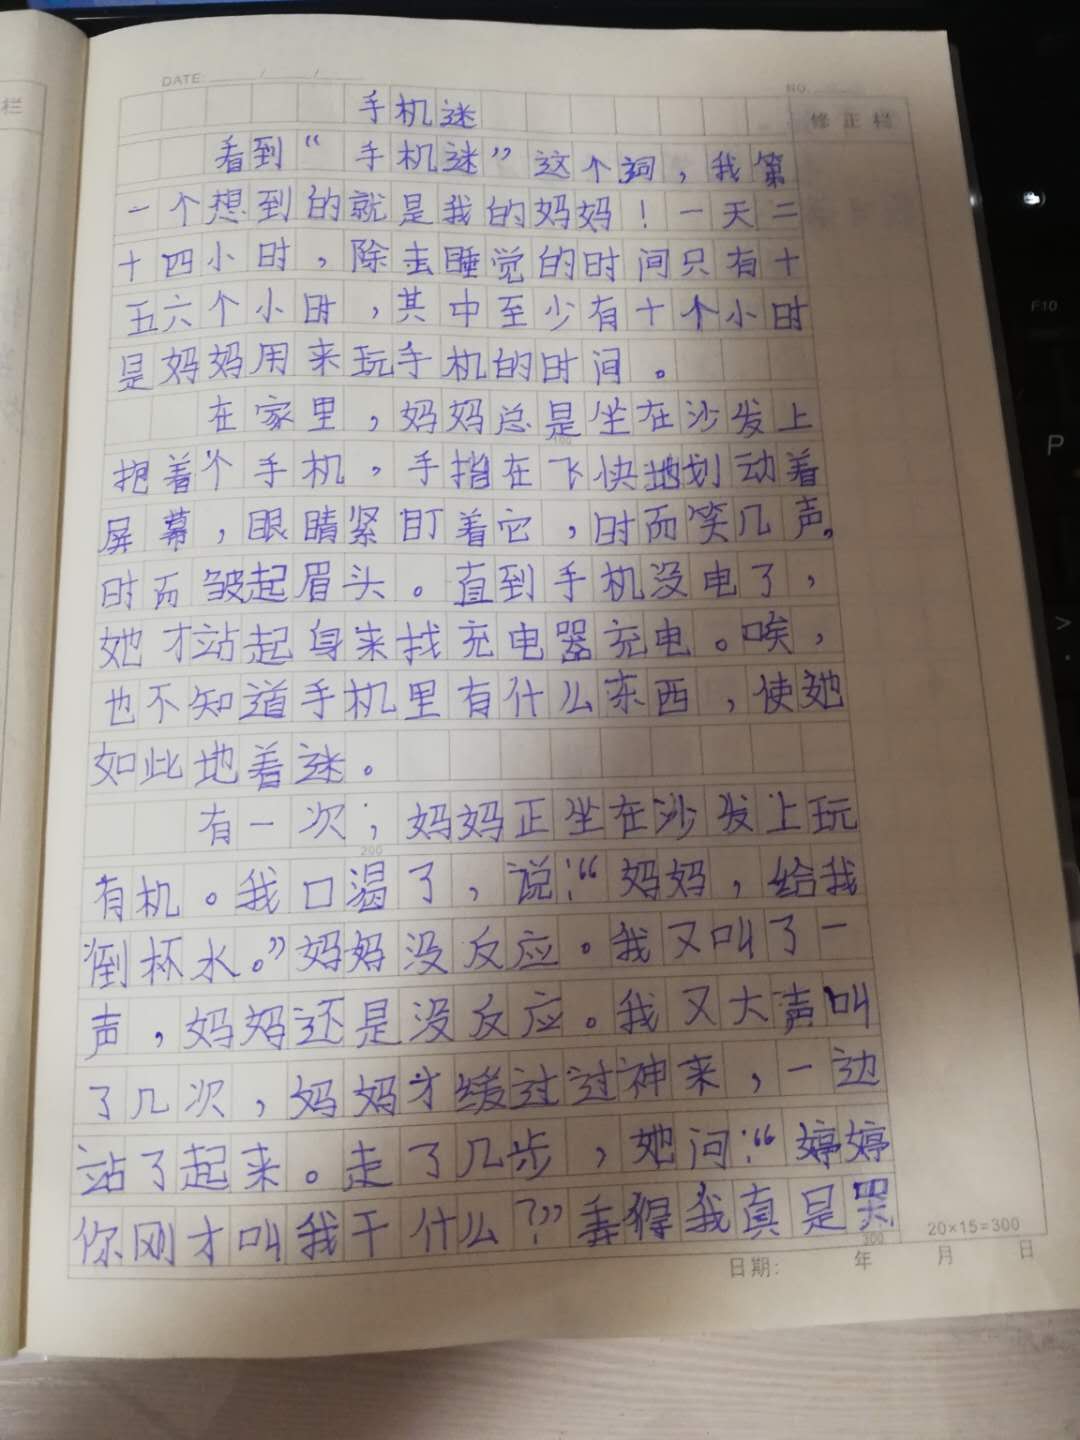 DATE: / /
NO.
栏
修正栏
手机迷
看到“手机迷”这个词，我第
一个想到的就是我的妈妈！一天二
十四小时，除去睡觉的时间只有十
五六个小时，其中至少有十个小时
是妈妈用来玩手机的时间。
在家里，妈妈总是坐在沙发上
抱着个手机。手指在飞快地划动着
屏幕，眼睛紧盯着它，时而笑几声。
时而皱起眉头。直到手机没电了，
她才站起身来找充电器充电。唉，
也不知道手机里有什么东西，使她
如此地着迷。
有一次；妈妈正坐在沙发上玩
200
有机。我口渴了，说：“妈妈，给我
倒杯水。”妈妈没反应。我又叫了一
声，妈妈还是没反应。我又大声叫
了几次，妈妈才缓过过神来，一边
站了起来。走了几步，她问：“婷婷
你刚才叫我干什么？”弄得我真是哭
300
20×15=300
日期: 年 月 日
F10
P
>